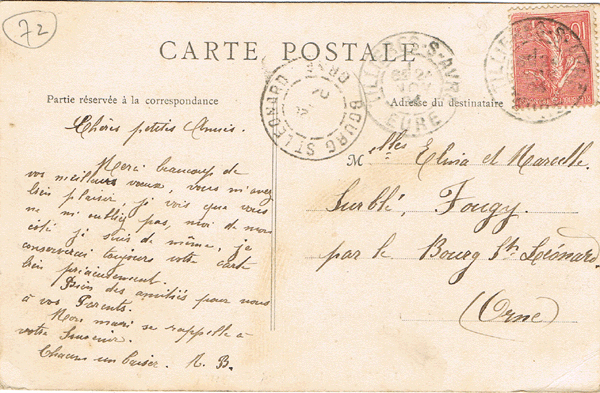 72
CARTE POSTALE
Partie réservée à la correspondance
Adresse du destinataire
BOURG ST LÉONARD
ORNE
TILLIERES-S-AVRE
EURE
10
Chères petites Amies.
Merci beaucoup de
vos meilleurs vœux, vous m'avez
bien fait plaisir, je vois que vous
ne m'oubliez pas, moi de mon
côté je suis de même, je
conserverai toujours votre carte
bien précieusement.
Bien des amitiés pour vous
à vos Parents.
Mon mari se rappelle à
votre Souvenir.
Chacun un baiser. N. B.
Melles Elina et Marcelle
Surblé, Fougy
par le Bourg St Léonard
(Orne)